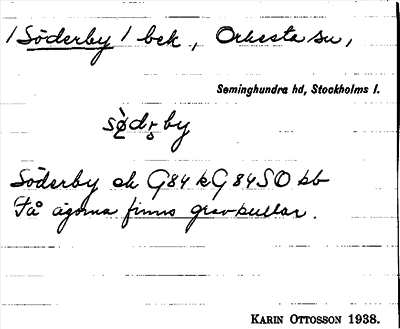 /Söderby/ bek, Orkesta sn,
Seminghundra hd, Stockholms l.
sø̀dr̥by
Söderby ek G84 kG84SO kb
Få ägorna finns gravkullar.
KARIN OTTOSSON 1938.